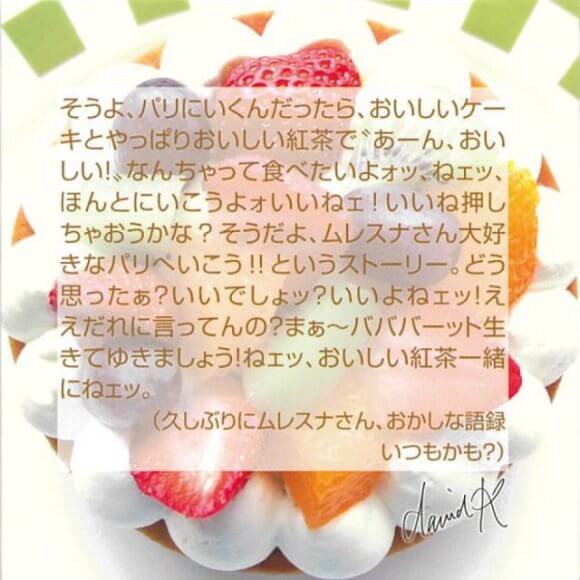 そうよ、パリにいくんだったら、おいしいケー
キとやっぱりおいしい紅茶で〝あーん、おい
しい!〟なんちゃって食べたいよォッ、ねェッ、
ほんとにいこうよォいいねェ!いいね押し
ちゃおうかな?そうだよ、ムレスナさん大好
きなパリへいこう!!というストーリー。どう
思ったぁ?いいでしょッ?いいよねェッ!え
えだれに言ってんの?まぁ〜バババーット生
きてゆきましょう!ねェッ、おいしい紅茶一緒
にねェッ。
(久しぶりにムレスナさん、おかしな語録
いつもかも?)
David K